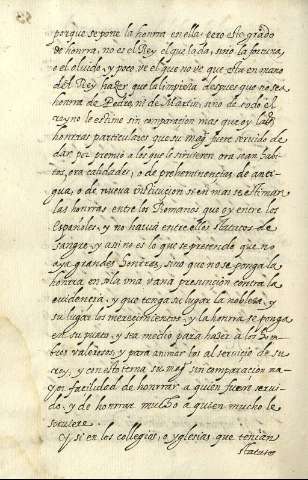 porque se pone la honrra en ella: pero este grado
de honrra, no es el Rey el que la da, sino la fortuna
o el olvido, y poco ve el que no ve que esta en mano
del Rey hazer que la limpieza despues que no sea
honrra de Pedro, ni de Martin, sino de todo el
reyno le estime sin comparacion mas que oy las
honrras particulares que su mag. fuere servido de
dar por premio a los que le sirvieren ora sean habi
tos, ora calidades, o de preheminencias de anti
gua, o de nueva institucion si en mas se estiman
las honrras entre los Romanos que oy entre los
Españoles, y no havia entre ellos statutos de
sangre, y ansi no es lo que se pretende que no
aya grandes honrras, sino que no se ponga la
honrra en sola una vana presuncion contra la
evidencia, y que tenga su lugar la nobleza, y
su lugar los merecimientos, y la honrra se ponga
en su punto, y sea medio para hazer a los hom
bres valerosos, y para animarlos al servicio de su
rey, y con esto terna su mag. sin comparacion ma
yor facilidad de honrrar a quien fuere servi
do, y de honrrar mucho a quien mucho le
sirviere.
Y si en los collegios, o yglesias que tenian
statutos